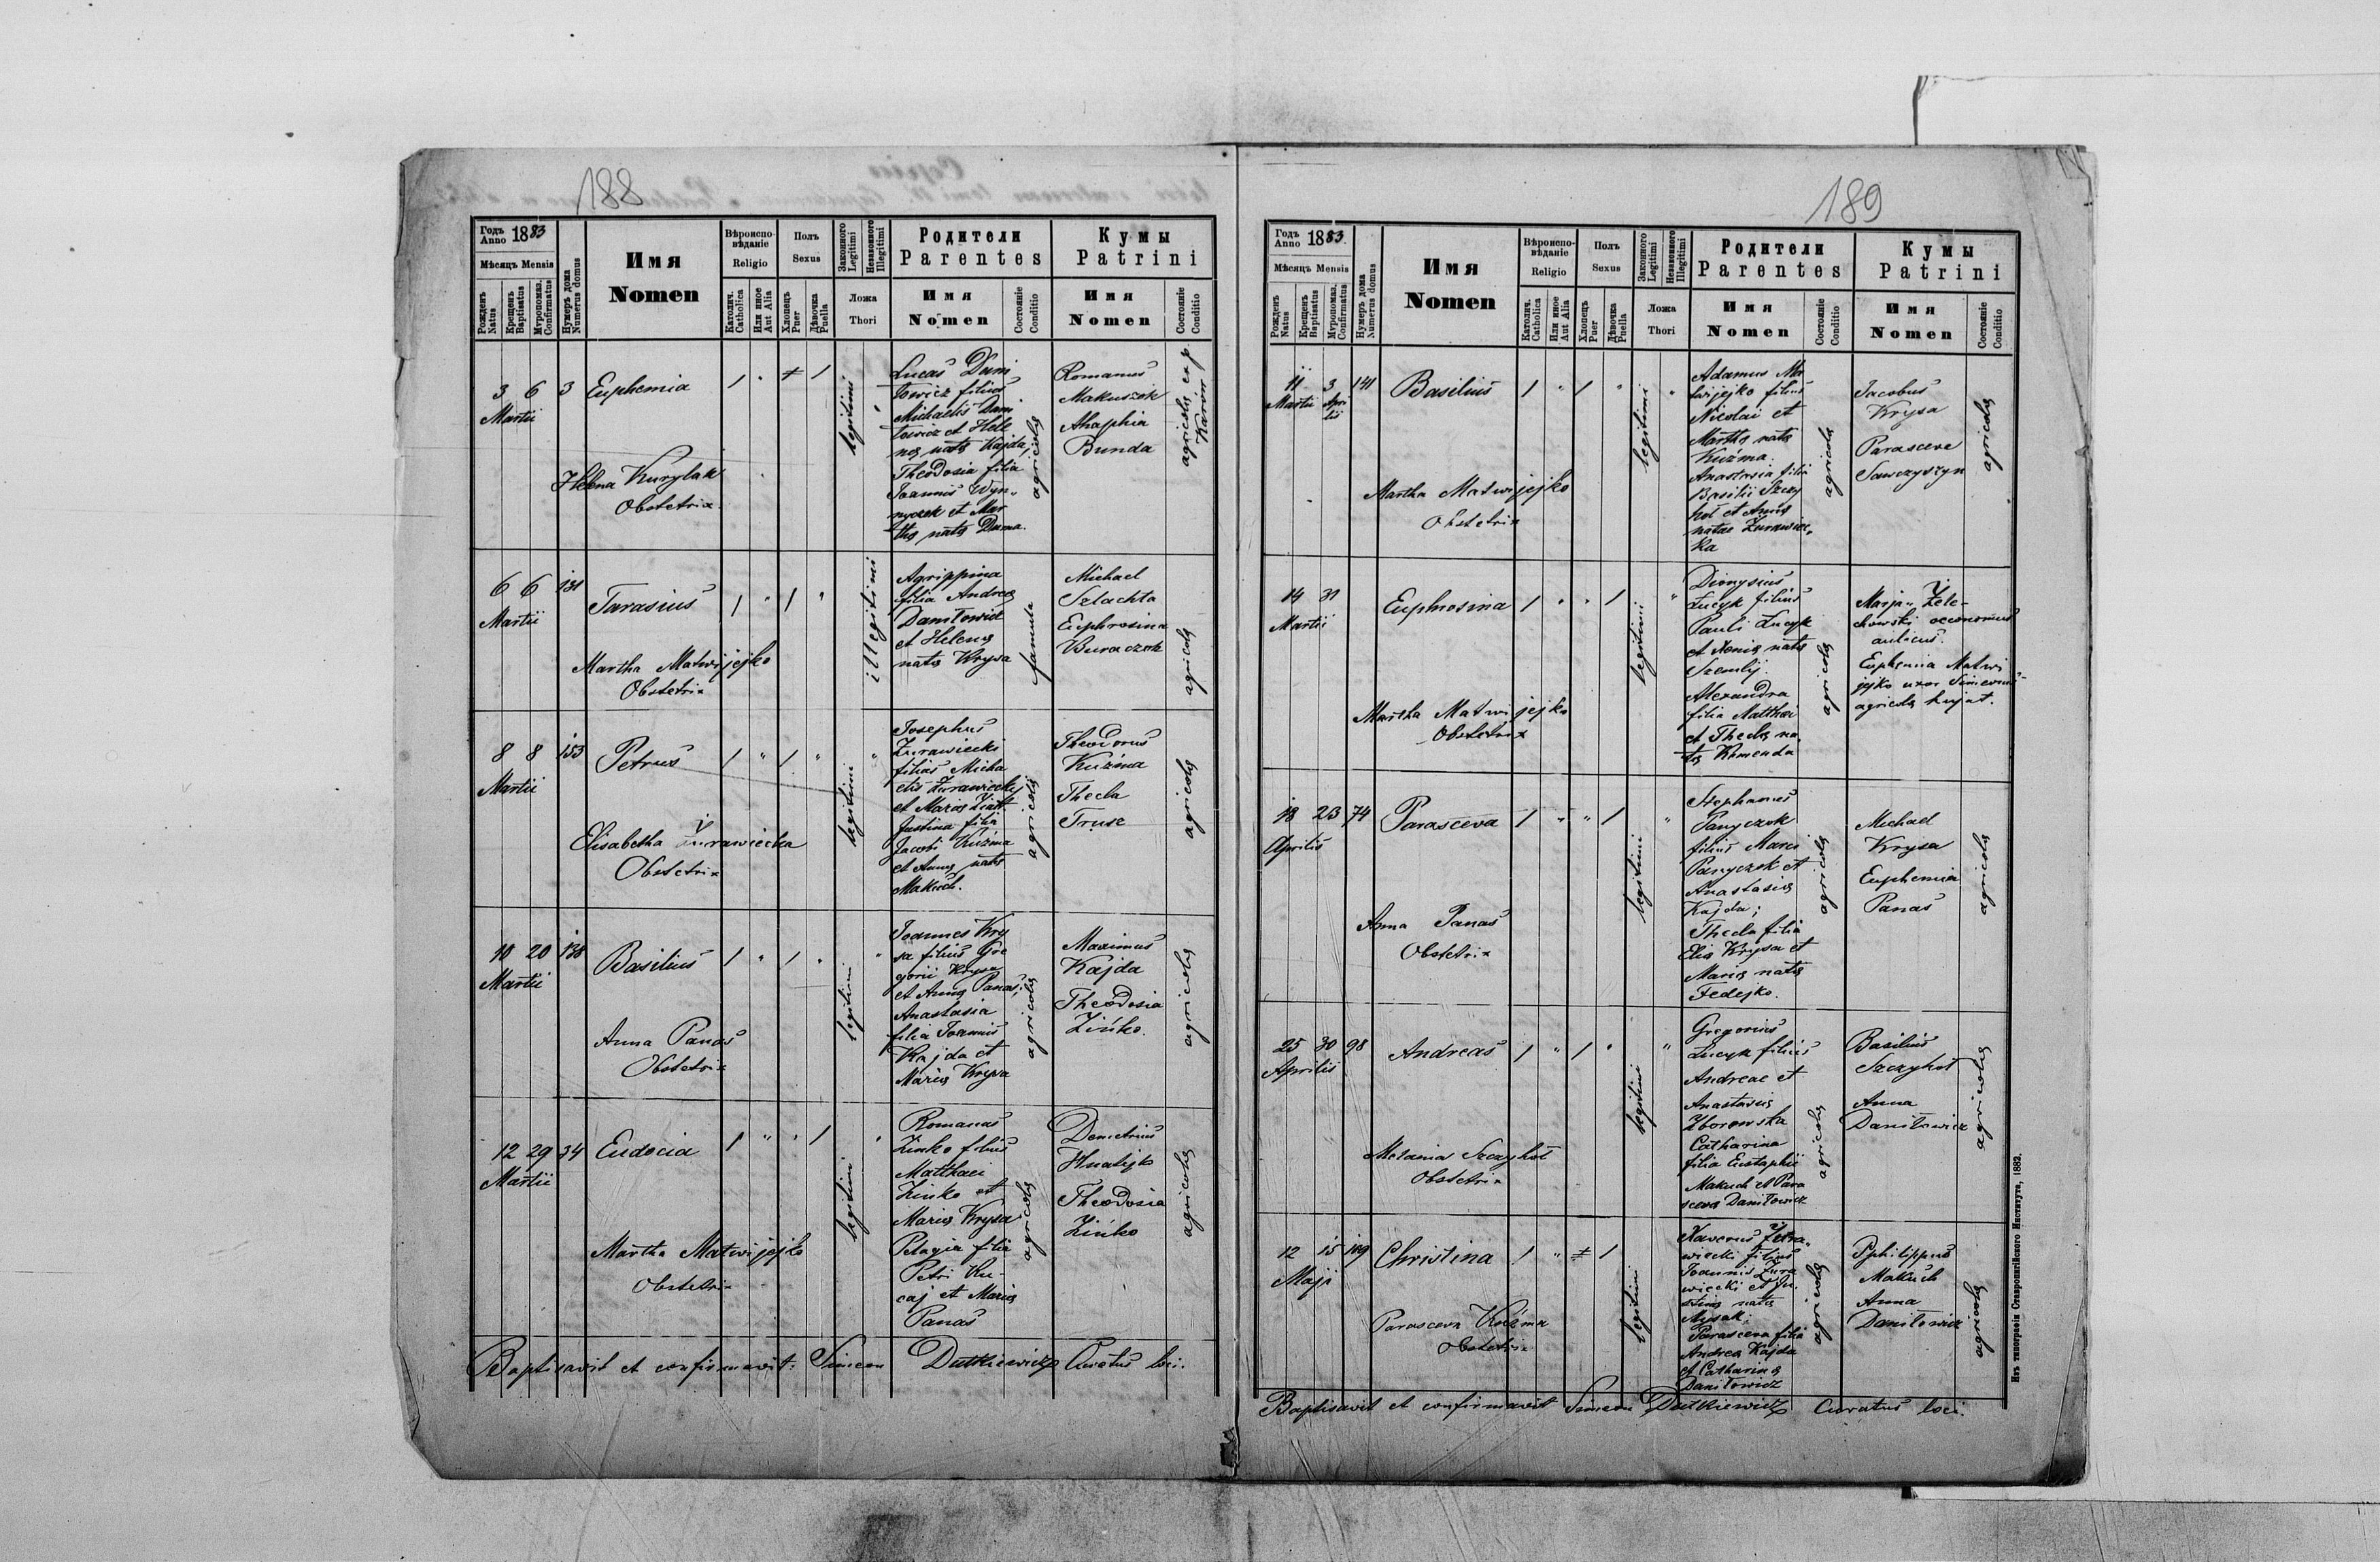 188
Годъ Anno 1883
Мѣсяцъ Mensis
Рожденъ Natus
Крещенъ Baptisatus
Мѵропомаз. Confirmatus
Нумеръ дома Numerus domus
Имя
Nomen
Вѣроиспо-
вѣданіе
Religio
Католич. Catholica
Или иное Aut Alia
Полъ
Sexus
Хлопецъ Puer
Дѣвочка Puella
Законного Legitimi
Незаконного Illegitimi
Ложа
Thori
Родители
Parentes
Имя
Nomen
Состояніе Conditio
Кумы
Patrini
Имя
Nomen
Состояніе Conditio
3 6 3 Euphemia
Martii
Helena Kurylak
Obstetrix
legitimi
Lucas Dani
łowicz filius
Michaelis Dani
łowicz et Hele
nae natae Kajda,
Theodosia filia
Joannis Wyn„
nyczek et Mar
thae natae Duma.
agricolae
Romanus
Makuszok
Ahaphia
Bunda
6 6 131
Martii
Tarasius
Martha Matwijejko
Obstetrix
illegitimi
Agrippina
filia Andreae
Daniłowicz
et Helenae
natae Krysa
famula
Michael
Szlachta
Euphrosina
Buraczok
agricolae
8 8 153 Petrus
Martii
Elisabetha Żurawiecka
Obstetrix
legitimi
Josephus
Żurawiecki
filius Micha
elis Żurawiecki
et Mariae
Justina filia
Jacobi Kuźma
et Annae natae
Makuch.
agricolae
Theodorus
Kuźma
Thecla
Trusz
agricolae
18 20 138 Basilius
Martii
Anna Panas
Obstetrix
legitimi
Joannes Kry
sa filius Gre
gorii Krysa
et Annae Panas;
Anastasia
filia Joannis
Kajda et
Mariae Krysa
agricolae
Maximus
Kajda
Theodosia
Zińko.
agricolae
12 29 34 Eudocia
Martii
Martha Matwijejko
Obstetrix
legitimi
Romanus
Zinko filius
Matthaei
Zinko et
Mariae Krysa
Pelagia filia
Petri Ku-
caj et Mariae
Panas
agricolae
Demetrius
Hnatijk
Theodosia
Zińko
agricolae
Baptisavit et confirmavit: Simeon Dutkiewicz Curatus loci.
189
Годъ Anno 1883.
Мѣсяцъ Mensis
Рожденъ Natus
Крещенъ Baptisatus
Мѵропомаз. Confirmatus
Нумеръ дома Numerus domus
Имя
Nomen
Вѣроиспо-
вѣданіе
Religio
Католич. Catholica
Или иное Aut Alia
Полъ
Sexus
Хлопецъ Puer
Дѣвочка Puella
Законного Legitimi
Незаконного Illegitimi
Ложа
Thori
Родители
Parentes
Имя
Nomen
Состояніе Conditio
Кумы
Patrini
Имя
Nomen
Состояніе Conditio
11 3 141 Basilius
Martii Aprilis
Martha Matwijejko
Obstetrix
legitimi
Adamus Ma
twijejko filius
Nicolai et
Marthae natae
Kuźma.
Anastasia filia
Basilii Szczy
hoł et Annae
natae Żurawiec„
ka
agricolae
Jacobus
Krysa
Parasceve
Sawczyszyn
agricolae
14 31
Martii
Euphrosina
Martha Matwijejko
Obstetrix
legitimi
Dionysius
Łucyk filius
Pauli Łucyk
et Xeniae natae
Alexandra
filia Matthaei
et Theclae na„
tae Komenda
agricolae
Marja„ Żele-
chowski oeconomus
aulicus.
Euphemia Matwi
jejko uxor Simeonis
agricolae hujat.
18 23 74 Parasceva
Aprilis
Anna Panas
Obstetrix
legitimi
Stephanus
Panyczok
filius Marci
Panyczok et
Anastasiae
Kajda;
Thecla filia
Eliae Krysa et
Mariae natae
Fedejko.
agricolae
Michael
Krysa
Euphemia
Panas
agricolae
25 30 98 Andreas
Aprilis
Melania Szczyhoł
Obstetrix
legitimi
Gregorius
Łucyk filius
Andreae et
Anastasiae
Zborowska
Catharina
filia Eustaphii
Makuch et Para
scevae Daniłowicz
agricolae
Basilius
Szczyhoł
Anna
Daniłowicz
agricolae
12 15 109 Christina
Maji
Parasceva Kuźma
Obstetrix
legitimi
Xawerus Żura„
wiecki filius
Joannis Żura
wiecki et Ju„
stinae natae
Parasceva filia
Andreae Kajda
et Catharinae
Daniłowicz
agricolae
Pphilippus
Makuch
Anna
Daniłowicz
agricolae
Baptisavit et confirmavit Simeon Dutkiewicz Curatus loci.
Изъ типографіи Ставропигійского Института, 1882.